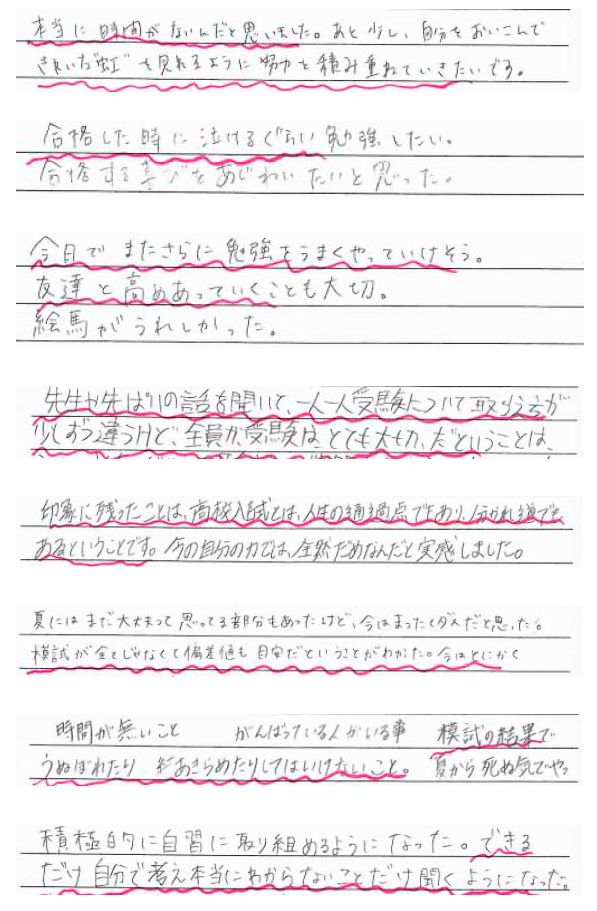 本当に時間がないんだと思いました。あと少し、自分をおいこんで
きれいな"虹"を見れるように努力を積み重ねていきたいです。
合格した時に泣けるぐらい勉強したい。
合格する喜びをあじわいたいと思った。
今日でまたさらに勉強をうまくやっていけそう。
友達と高めあっていくことも大切。
絵馬がうれしかった。
先生や先ぱいの話を聞いて、一人一人受験について取りくみ方が
少しずつ違うけど、全員が、受験は、とても大切、だということは、
印象に残ったことは、高校入試とは、人生の通過点でもあり、分かれ道でも
あるということです。今の自分の力では、全然だめなんだと実感しました。
夏にはまだ大丈夫って思ってる部分もあったけど、今はまったくダメだと思った。
模試が全てじゃなくて偏差値も目安だということがわかった。今はとにかく
時間が無いこと がんばっている人がいる事 模試の結果で
うぬぼれたり あきらめたりしてはいけないこと。 夏から死ぬ気でやっ
積極的に自習に取り組めるようになった。できる
だけ自分で考え本当にわからないことだけ聞くようになった。